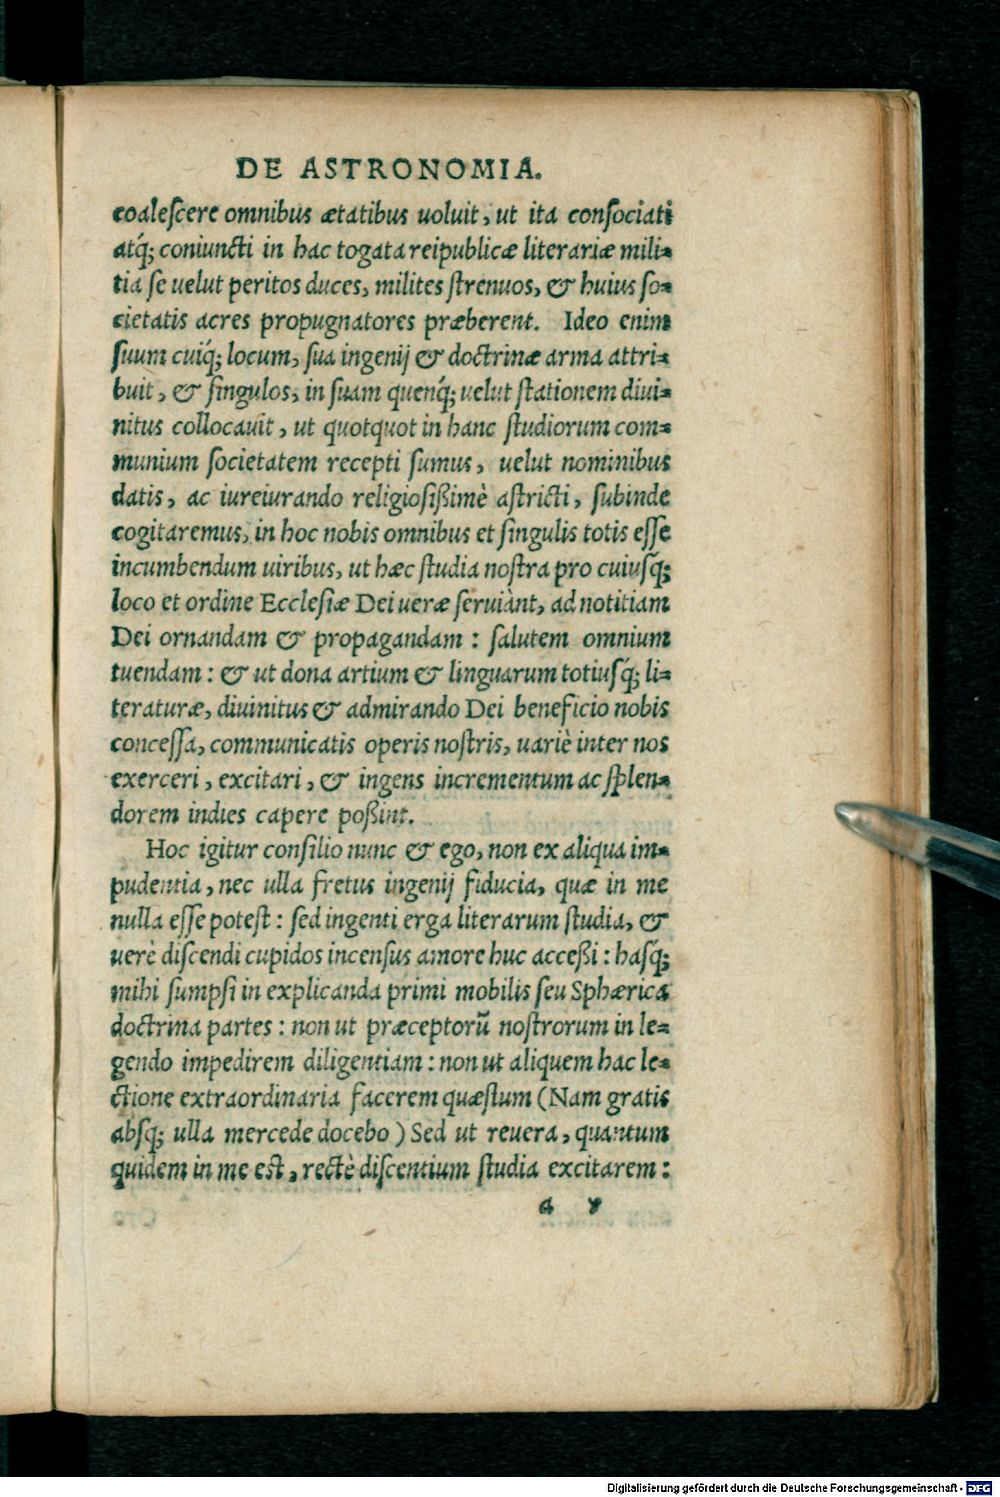 DE ASTRONOMIA.
coalescere omnibus ætatibus uoluit, ut ita consociati
atq́; coniuncti in hac togata reipublicæ literariæ mili-
tia se uelut peritos duces, milites strenuos, & huius so-
cietatis acres propugnatores præberent. Ideo enim
suum cuiq́; locum, sua ingenij & doctrinæ arma attri-
buit, & singulos, in suam quenq́; uelut stationem diui-
nitus collocauit, ut quotquot in hanc studiorum com-
munium societatem recepti sumus, uelut nominibus
datis, ac iureiurando religiosißimè astricti, subinde
cogitaremus, in hoc nobis omnibus et singulis totis esse
incumbendum uiribus, ut hæc studia nostra pro cuiusq́;
loco et ordine Ecclesiæ Dei ueræ seruiant, ad notitiam
Dei ornandam & propagandam : salutem omnium
tuendam : & ut dona artium & linguarum totiusq́; li-
teraturæ, diuinitus & admirando Dei beneficio nobis
concessa, communicatis operis nostris, uariè inter nos
exerceri, excitari, & ingens incrementum ac splen-
dorem indies capere poßint.
Hoc igitur consilio nunc & ego, non ex aliqua im-
pudentia, nec ulla fretus ingenij fiducia, quæ in me
nulla esse potest : sed ingenti erga literarum studia, &
uerè discendi cupidos incensus amore huc acceßi : hasq́;
mihi sumpsi in explicanda primi mobilis seu Sphærica
doctrina partes : non ut præceptorũ nostrorum in le-
gendo impedirem diligentiam : non ut aliquem hac le-
ctione extraordinaria facerem quæstum (Nam gratis
absq́; ulla mercede docebo) Sed ut reuera, quantum
quidem in me est, rectè discentium studia excitarem :
a v
Digitalisierung gefördert durch die Deutsche Forschungsgemeinschaft - DFG